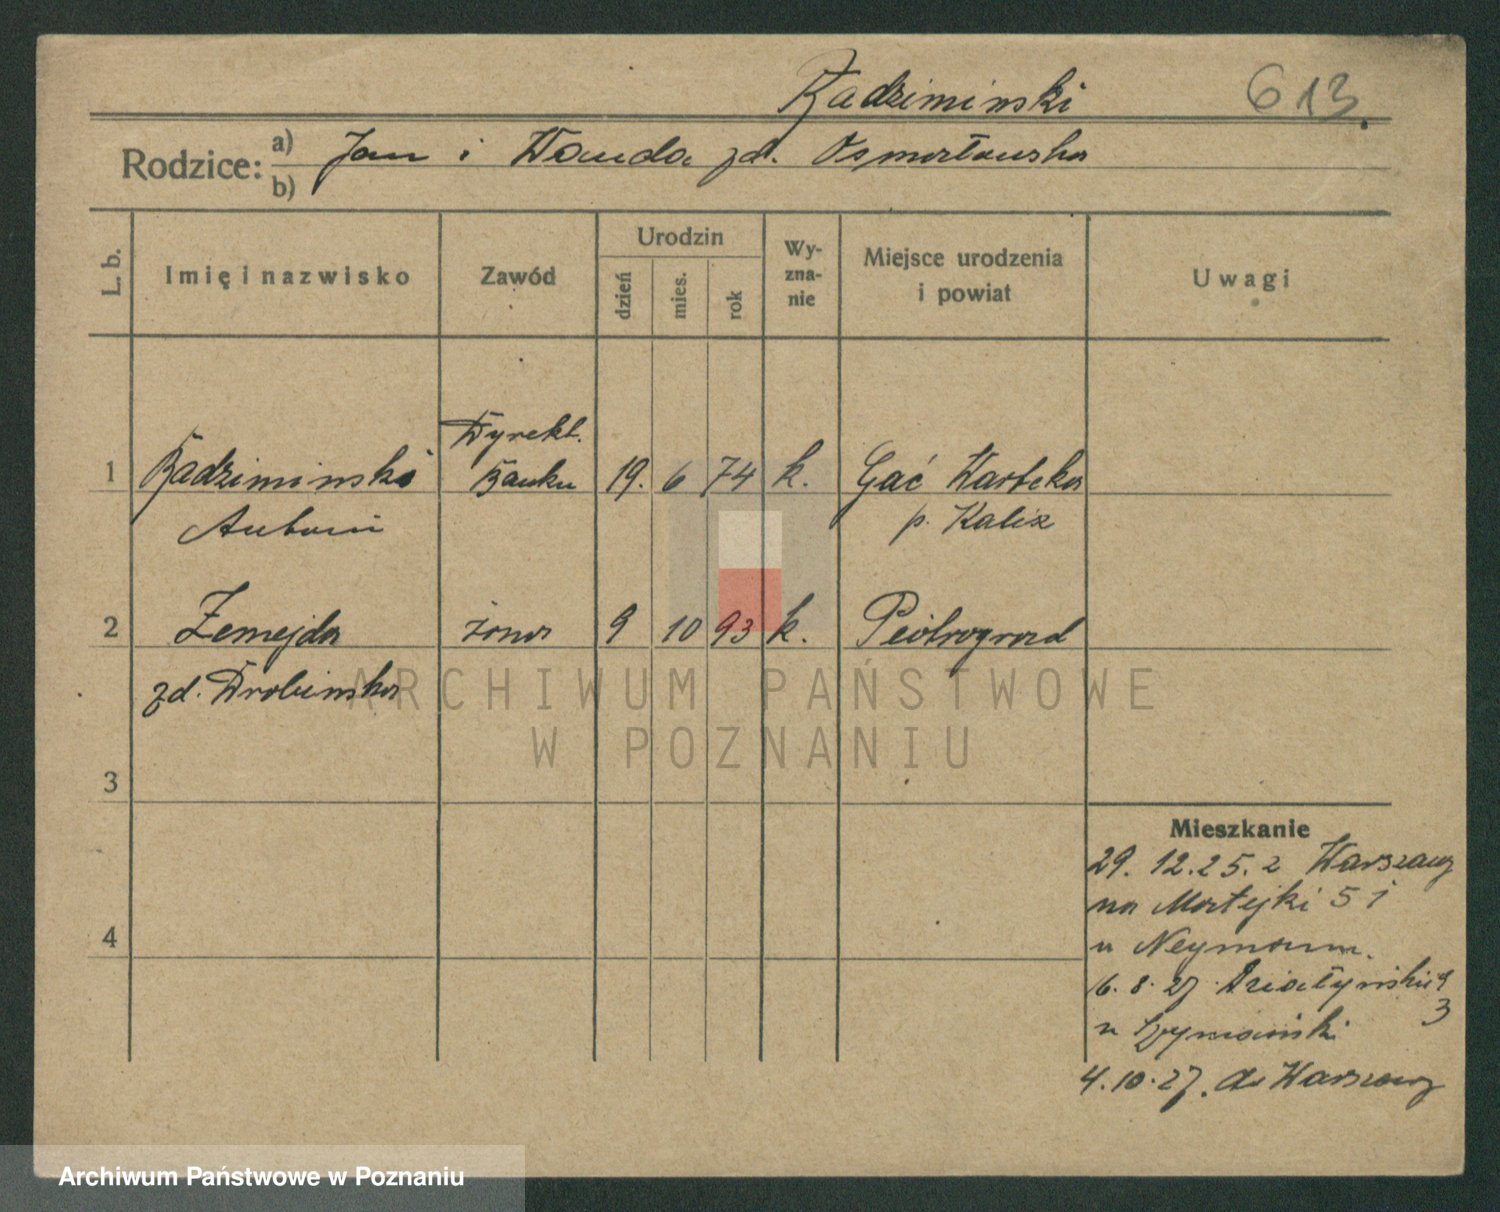 Radziminski 613.
Rodzice: a) Jan i Wanda zd. Osmołowska
b)
L. b. Imię i nazwisko Zawód Urodzin dzień mies. rok Wy-zna-nie Miejsce urodzenia i powiat Uwagi
Dyrekt.
1 Radziminski Banku 19. 6 74 k. Gać Wartcka
Antoni p. Kalisz
2 Zemejda żona 9 10 93 k. Piotrograd
zd. Wrobinska
3
4
Mieszkanie
29. 12. 25. z Warszawy
na Matejki 51
u Neymann.
16. 8. 27 Działyńskich
3
u Szymański
4. 10. 27. do Warszawy
ARCHIWUM PAŃSTWOWE
W POZNANIU
Archiwum Państwowe w Poznaniu